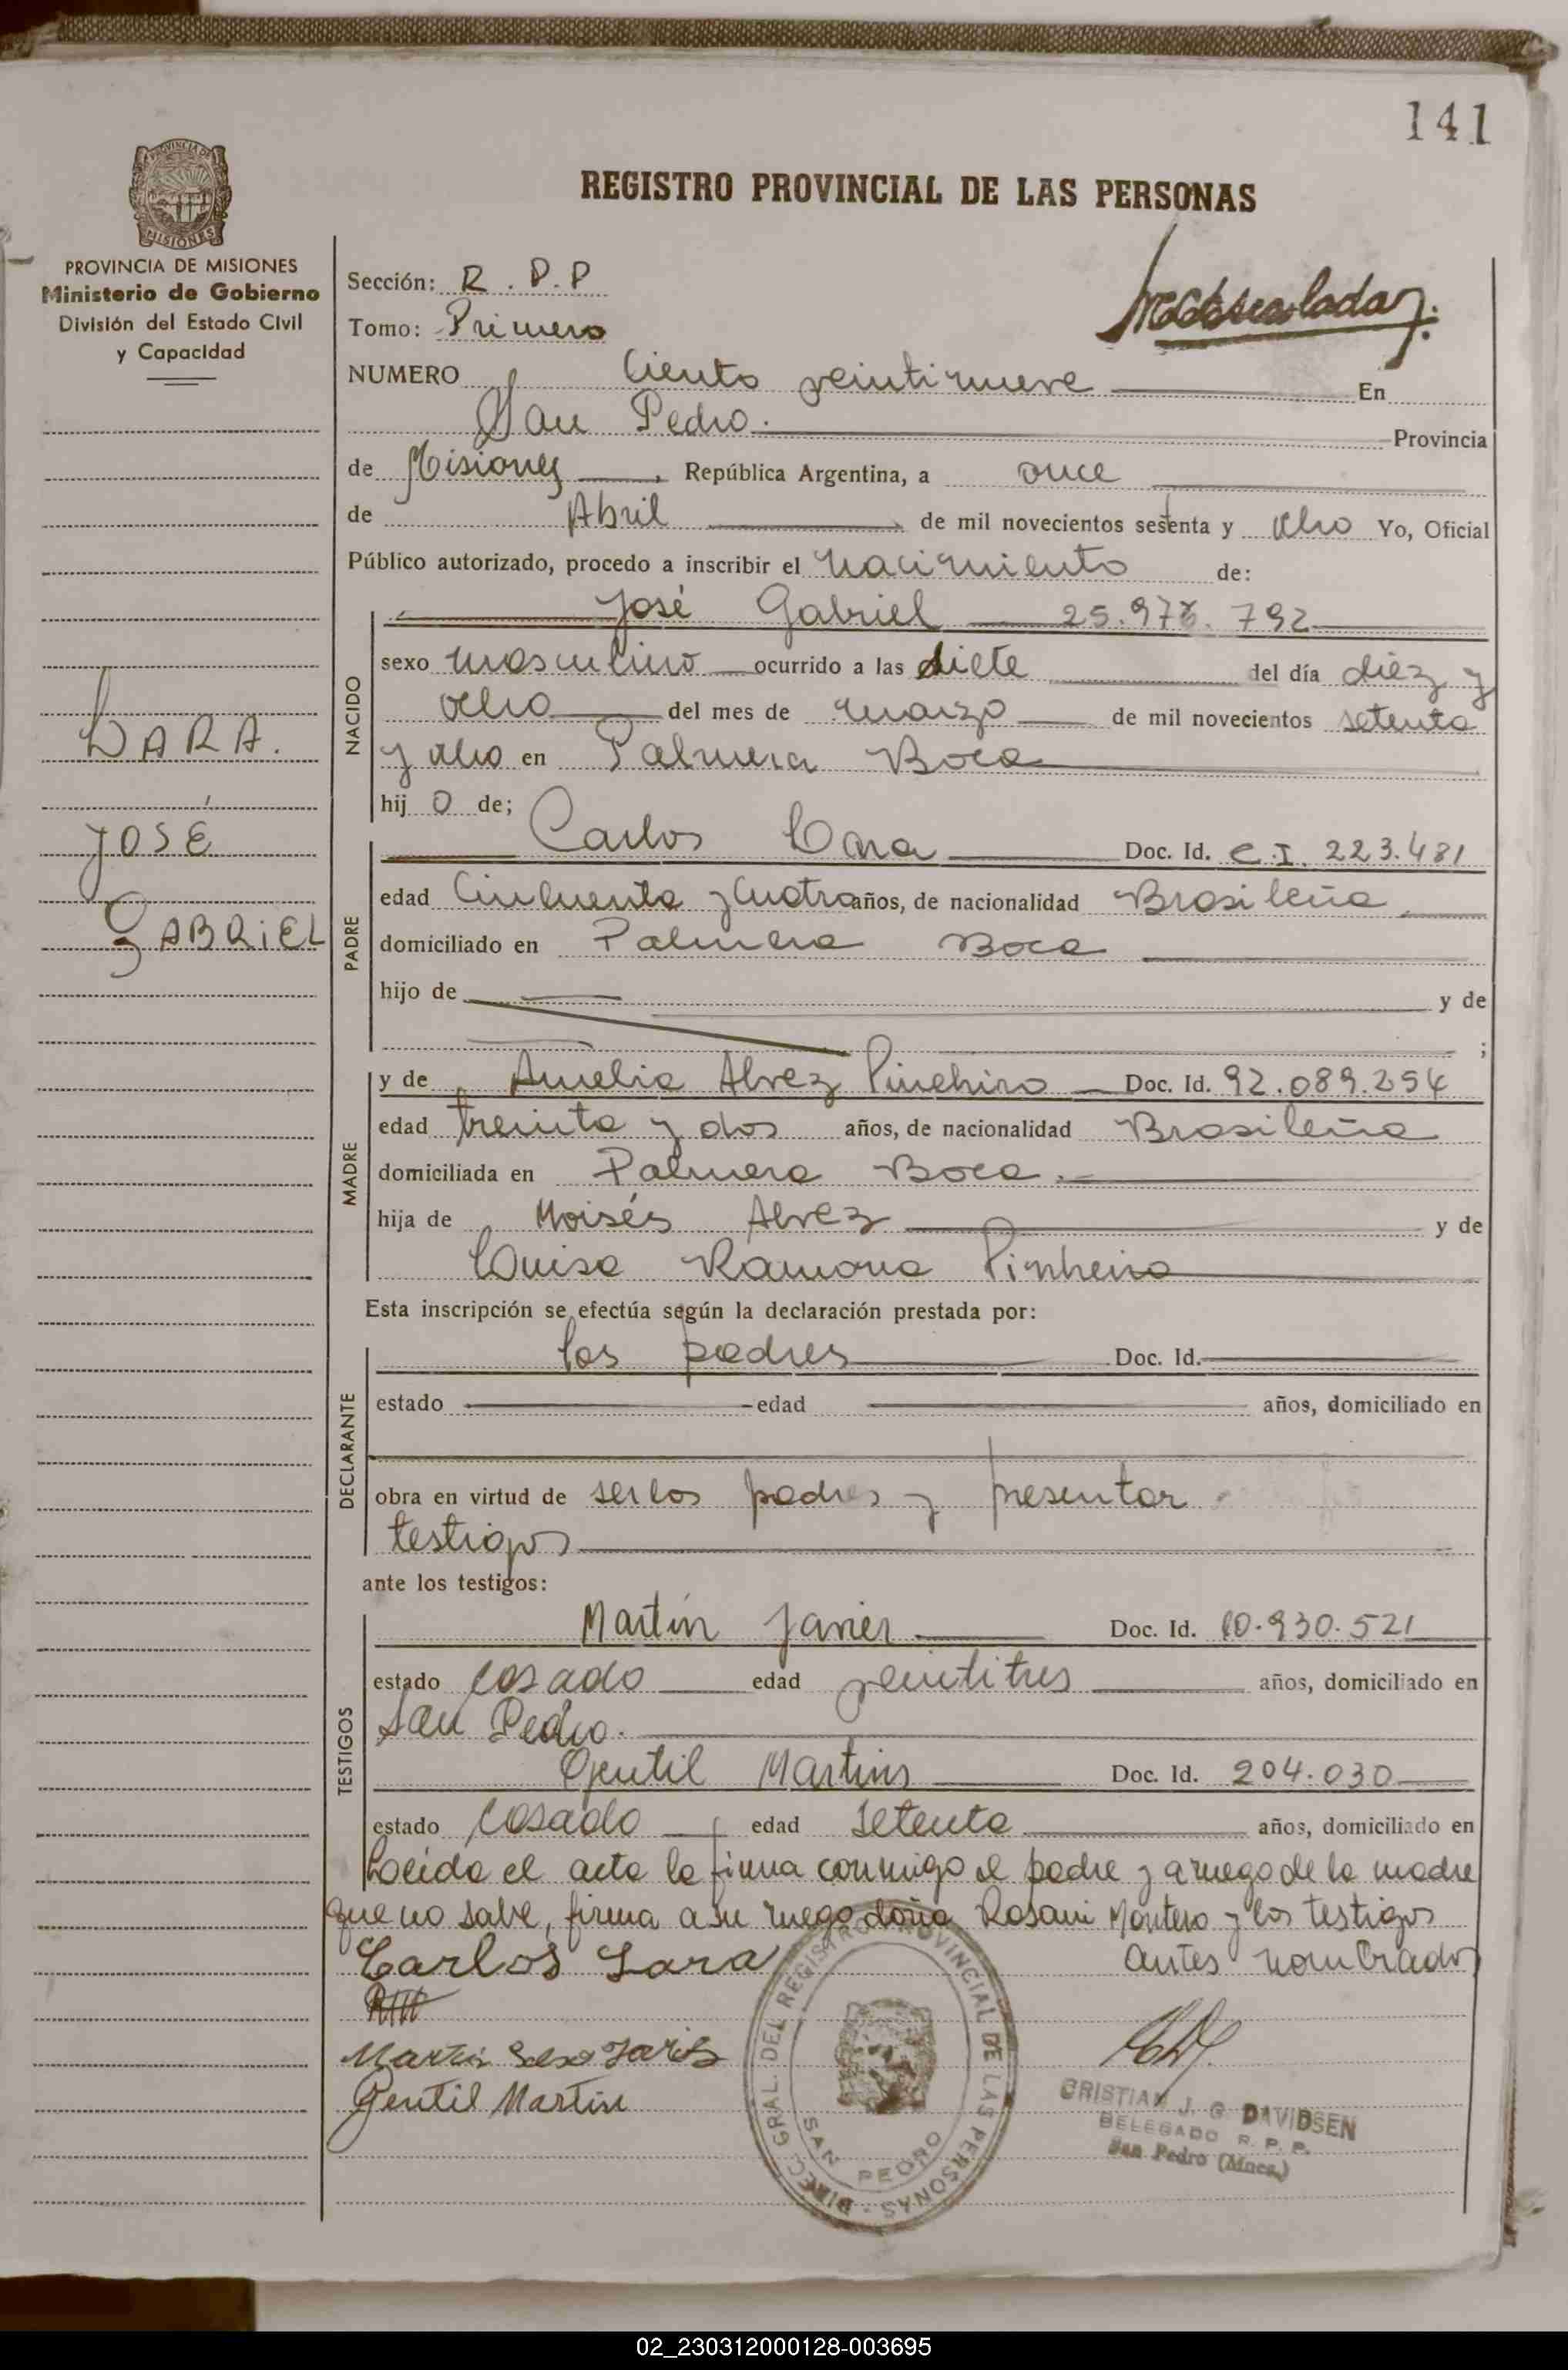 141
REGISTRO PROVINCIAL DE LAS PERSONAS
PROVINCIA DE MISIONES
MISIONES
PROVINCIA DE MISIONES
Ministerio de Gobierno
División del Estado Civil
y Capacidad
LARA.
JOSÉ
GABRIEL
Sección: R.P.P
Tomo: Primero
NUMERO Ciento veintinueve En
San Pedro. Provincia
de Misiones, República Argentina, a once
de Abril de mil novecientos setenta y ocho Yo, Oficial
Público autorizado, procedo a inscribir el nacimiento de:
NACIDO
José Gabriel 25.976.792
sexo masculino ocurrido a las siete del día diez y
ocho del mes de marzo de mil novecientos setenta
y ocho en Palmera Boca
hijo de;
PADRE
Carlos Lara Doc. Id. C.I. 223.481
edad Cincuenta y cuatro años, de nacionalidad Brasileña
domiciliado en Palmera Boca
hijo de y de
;
MADRE
y de Amelia Alvez Pinehiro Doc. Id. 92.089.254
edad treinta y dos años, de nacionalidad Brasileña
domiciliada en Palmera Boca.
hija de Moisés Alvez y de
Luisa Ramona Pinheiro
Esta inscripción se efectúa según la declaración prestada por:
DECLARANTE
los padres Doc. Id.
estado edad años, domiciliado en
obra en virtud de ser los padres y presentar
testigos
ante los testigos:
TESTIGOS
Martín Javier Doc. Id. 10.930.521
estado casado edad veintitres años, domiciliado en
San Pedro.
Gentil Martins Doc. Id. 204.030
estado casado edad setenta años, domiciliado en
Leída el acta la firma conmigo el padre y a ruego de la madre
que no sabe, firma a su ruego doña Rosani Montero y los testigos
antes nombrados
Carlos Lara
Gentil Martin
DIREC. GRAL. DEL REGISTRO PROVINCIAL DE LAS PERSONAS
SAN PEDRO
CRISTIAN J. G DAVIDSEN
DELEGADO R. P. P.
San Pedro (Mnes.)
02_230312000128-003695